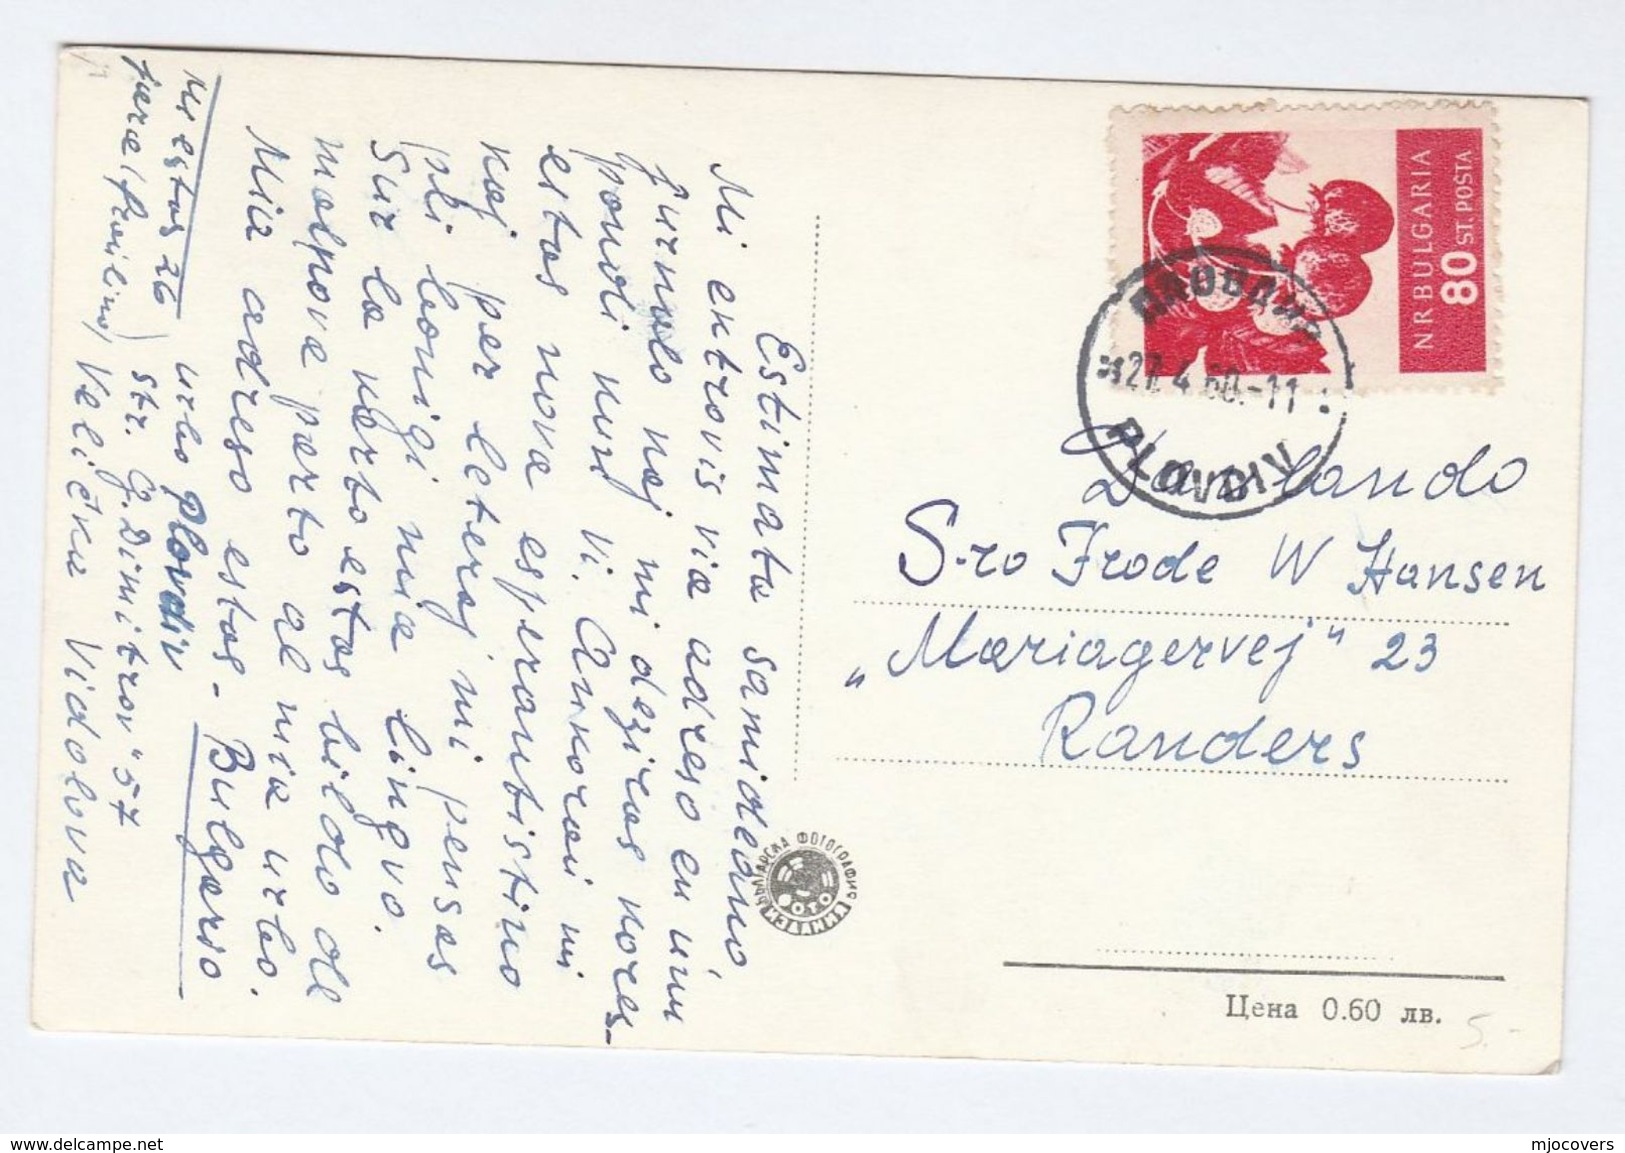 Estimata samideano,
Mi entrovis via adreso en unu
ĵurnalo kaj mi deziras kores-
pondi kun vi. Ankoraŭ mi
estas nova esperantistino
kaj per leteroj mi pensas
pli bonigi mia lingvo.
Sur la karto estas bildo de
malnova parto al mia urbo.
Mia adreso estas - Bulgario
urbo Plovdiv
str. "G. Dimitrov" 57
Velička Vidolova
Mi estas 26
jara (fraŭlino)
NR BULGARIA
80 ST. POŠTA
ПЛОВДИВ
27.4.60.-11
PLOVDIV
Danlando
S-ro Frode W Hansen
„Mariagervej" 23
Randers
БЪЛГАРСКА ФОТОГРАФИЯ
ФОТО
Цена 0.60 лв.
5.-
www.delcampe.net
mjocovers